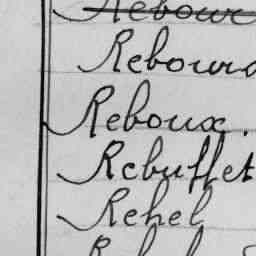 Rebour
Rebourd
Reboux.
Rebuffet
Rehel